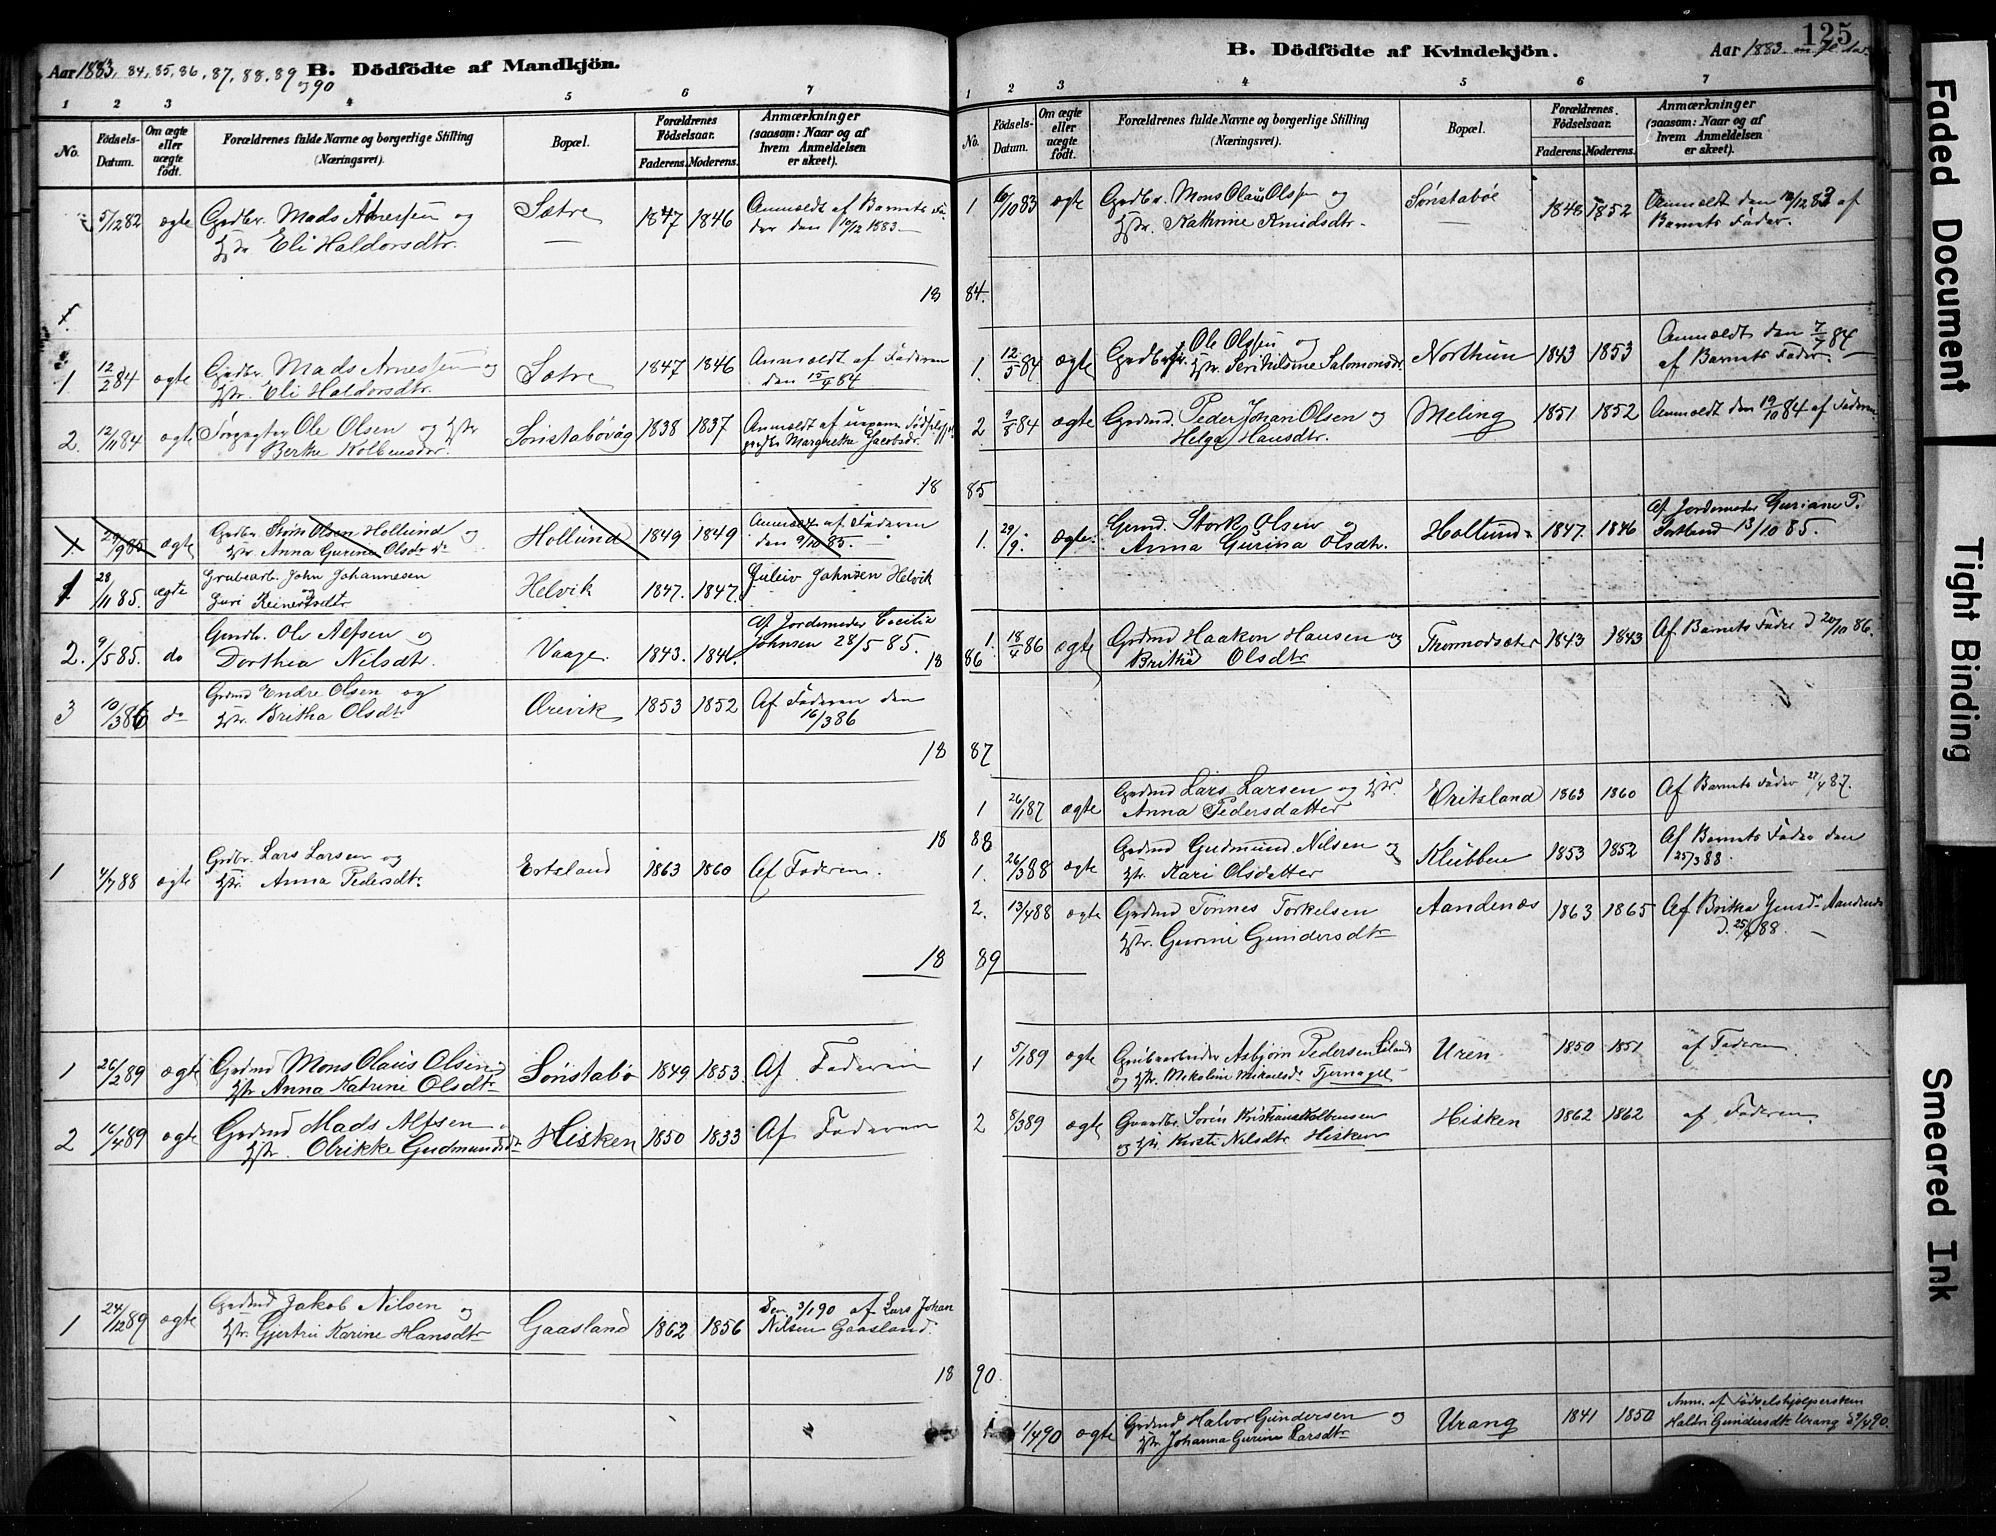 Aar 1883, 84, 85, 86, 87, 88, 89 og 90
B. Dödfödte af Mandkjön.
1 2 3 4 5 6 7
No.
Födsels-
Datum.
Om ægte
eller
uægte
födt.
Forældrenes fulde Navne og borgerlige Stilling
(Næringsvei).
Bopæl.
Forældrenes
Födselsaar.
Faderens. Moderens.
Anmærkninger
(saasom: Naar og af
hvem Anmeldelsen
er skeet).
5/12 82 ægte Grdbr. Mads Arnesen og Sætre 1847 1846 Anmeldt af Barnets Fa-
Hstr. Eli Haldorsdtr. der den 10/12 1883
18
1 12/2 84 ægte Grdbr. Mads Arnesen og Sætre 1847 1846 Anmeldt af Faderen
Hstr. Eli Haldorsdtr. den 15/4 84
2. 12/11 84 ægte Ole Olsen og Hstr Sönstabövåg 1838 1837 Anmeldt af
Berthe Kolbensdtr. Margrethe Jacobsdr.
18
1 29/9 85 ægte Grdbr. Störk Olsen Hollund og Hollund 1849 1849 Anmeldt af Faderen
Hstr. Anna Gurine Olsdr den 9/10 85.
1. 28/11 85. ægte Grubearb. John Johannesen Helvik 1847. 1847. Guleiv Johnsen Helvik
Guri Reinertsdtr
2. 9/5 85. do Grmd. Ole Alfsen og Vaage 1843. 1846. Af Jordemoder Cecilie
Dorthea Nilsdt. Johnsen 28/5 85.
18
3 10/3 86 do Grdmd Endre Olsen og Örevik 1853 1852 Af Faderen den
Hstr. Britha Olsdtr 16/3 86
18
18
1 4/7 88 ægte Grdbr. Lars Larsen og Ertsland 1863 1860 Af Faderen.
Hstr. Anna Pedersdtr.
18
1 26/2 89 ægte Grdmd Mons Olaus Olsen Sönstabö 1849 1853. Af Faderen
Hstr. Anna Katrine Olsdtr
2 16/4 89 ægte Grdmd Mads Alfsen Hisken 1850 1833 Af Faderen
Hstr. Olrikke Gudmundsdt
1 24/12 89 ægte Grdmd Jakob Nilsen og Gaasland 1862 1856 Den 3/1 90 af Lars Johan
Hstr. Gjertrü Karine Hansdtr Nilsen Gaasland.
18
125
B. Dödfödte af Kvindekjön.
Aar 1883 m. fl. Aar.
1 2 3 4 5 6 7
No.
Födsels-
Datum.
Om ægte
eller
uægte
födt.
Forældrenes fulde Navne og borgerlige Stilling
(Næringsvei).
Bopæl.
Forældrenes
Födselsaar.
Faderens. Moderens.
Anmærkninger
(saasom: Naar og af
hvem Anmeldelsen
er skeet).
1 6/10 83 ægte Grdbr. Mons Olaus Olsen og Sönstaböe 1848 1852 Anmeldt den 10/12 83 af
Hstr. Kathrine Knudsdtr. Barnets Fader.
84.
1. 12/5 84 ægte Grdbr. Ole Olsen og Northun 1843 1853 Anmeldt den 7/7 84
Hstr. Salomonsdr af Barnets Fader
2. 9/8 84 ægte Grdmd. Peder Johan Olsen og Meling 1851 1852 Anmeldt den 19/10 84 af Faderen
Helga Hansdtr.
85
1. 29/9. ægte. Grmd. Störk Olsen og Hollund 1847. 1846 Af Jordemoder Guriane T.
Anna Gurina Olsdtr. Fortland 13/10 85.
86
1. 18/4 86 ægte Grdmd Haakon Hansen og Thormodsæter 1843 1843 Af Barnets Fader d 20/10 86.
Britha Olsdtr
87
1 26/1 87 ægte Grdmd Lars Larsen og Hstr. Eritsland 1863 1860 Af Barnets Fader 27/4 87.
Anna Pedersdatter
88
1. 26/3 88 ægte Grdmd Gudmund Nilsen og Klubben 1853 1852 Af Barnets Fader den
Hstr. Kari Olsdatter 25/3 88.
2. 13/4 88 ægte Grdmd Tönnes Torkelsen Aandenæs 1863 1865 Af Britha Jensd Aandenæs
Hstr. Gurine Gundersdtr d. 25/4 88.
89
1 5/1 89 ægte Grubearbeider Asbjörn Pedersen Uren 1850 1851 af Faderen.
og Hstr. Mikoline Mikaelsdr Tjernagel
2 8/3 89 ægte Gaardbr. Sören Kristian Kolbensen Hisken 1862 1862 af Faderen
og Hstr. Kirsti Nilsdtr Hisken
90.
1. 1/4 90 ægte Grdmd Halvor Gundersen og Urang 1841 1850 Anm. af Födselshjelpersken
Hstr Johanna Gurine Larsdtr Gundersdtr Urang d 9/4 90.
Faded Document
Tight Binding
Smeared Ink